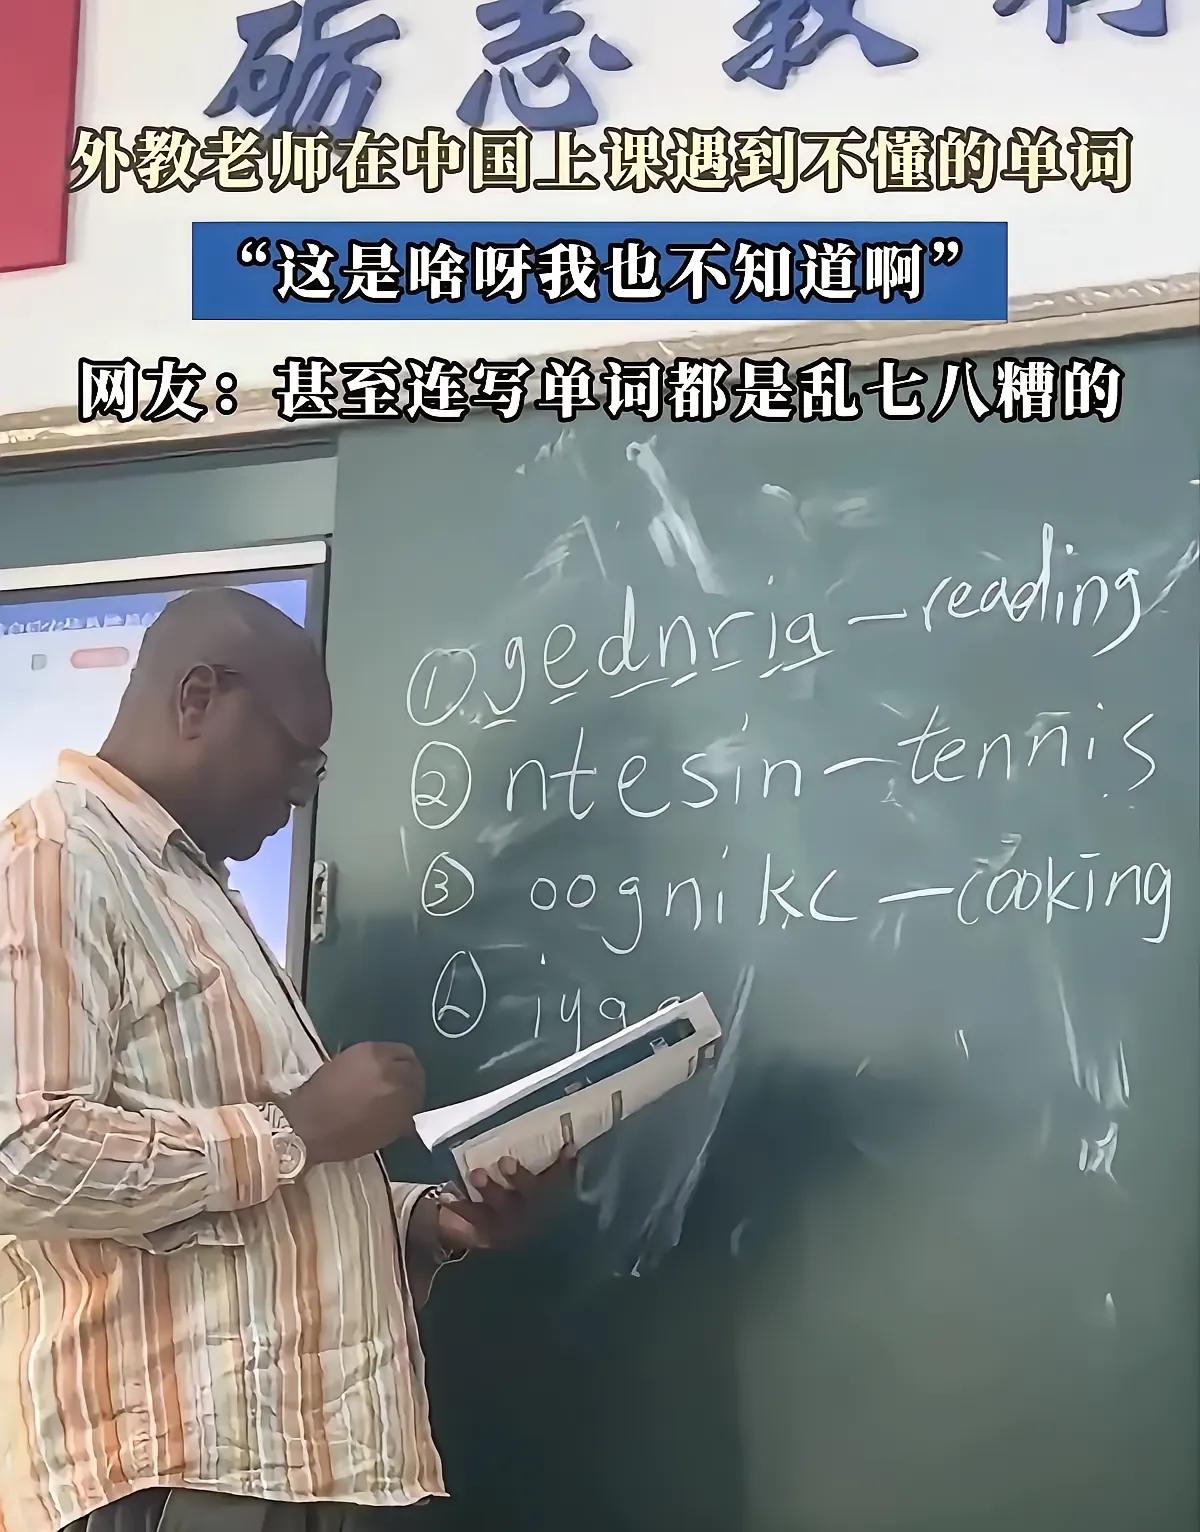 砺志
外教老师在中国上课遇到不懂的单词
“这是啥呀我也不知道啊”
网友：甚至连写单词都是乱七八糟的
① gednria – reading
② ntesin – tennis
③ oognikc – cooking